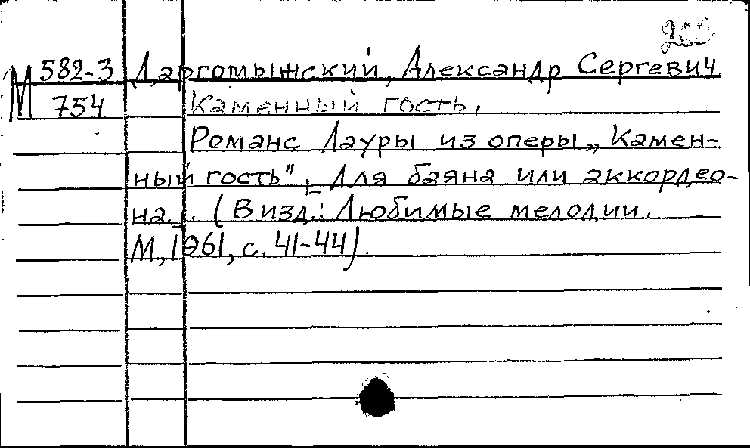 М 582-3 Даргомыжский, Александр Сергевич
754 Каменный гость.
Романс Лауры из оперы „Камен-
ный гость". Для баяна или аккордео-
на. . (В изд.: Любимые мелодии.
М., 1961, с. 41-44)